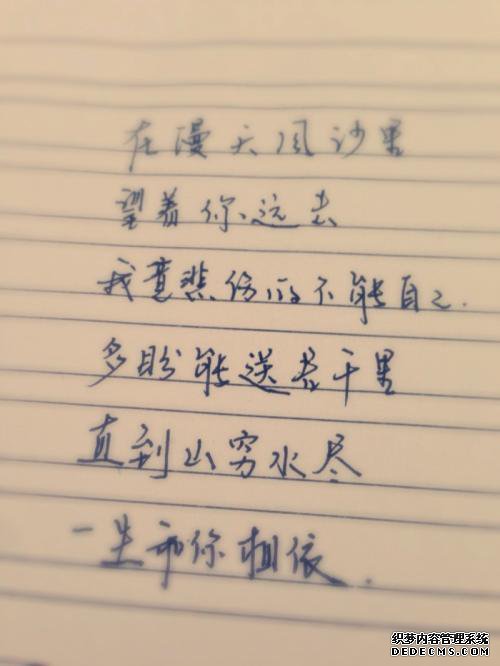 在漫天风沙里
望着你远去
我竟悲伤的不能自己.
多盼能送君千里
直到山穷水尽
一生和你相依.
织梦内容管理系统
DEDECMS.COM